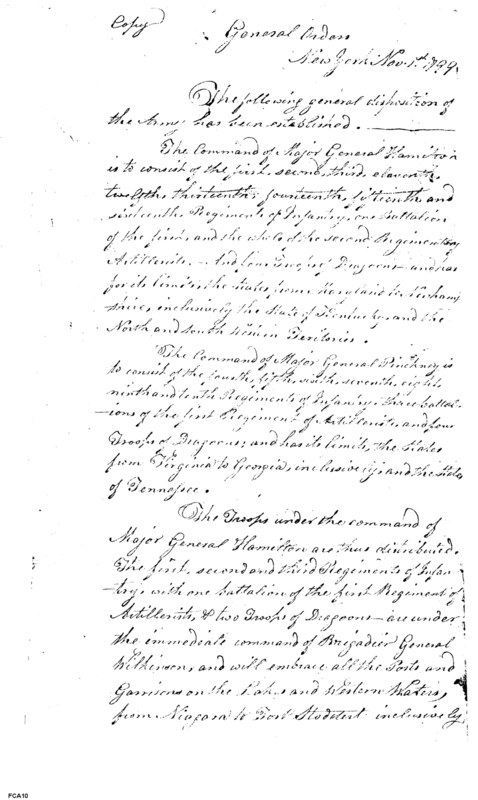 Copy
General Orders
New York Nov. 1st 1799.
The following general disposition of
the Army has been established.
The Command of Major General Hamilton
is to consist of the first, second, third, eleventh,
twelfth, thirteenth, fourteenth, fifteenth, and
sixteenth Regiments of Infantry, one battalion
of the first, and the whole of the second Regiment of
Artillerists. And four Troops of Dragoons — and has
for its limits, the States from Maryland to
inclusively the State of Kentucky, and the
North and south Western Territories.
The Command of Major General Pinckney is
to consist of the fourth, fifth, sixth, seventh, eighth
ninth and tenth Regiments of Infantry, three battal-
-ions of the first Regiment of Artillerists, and four
Troops of Dragoons; and has its limits, the States
from Virginia to Georgia, inclusively, and the State
of Tennessee.
The Troops under the command of
Major General Hamilton are thus distributed.
The first, second and third Regiments of Infan-
-try, with one battalion of the first Regiment of
Artillerists, & two Troops of Dragoons — are under
the immediate command of Brigadier General
Wilkinson, and will embrace all the Posts and
Garrisons on the Lakes and Western Waters,
from Niagara to Fort inclusively
FCA10